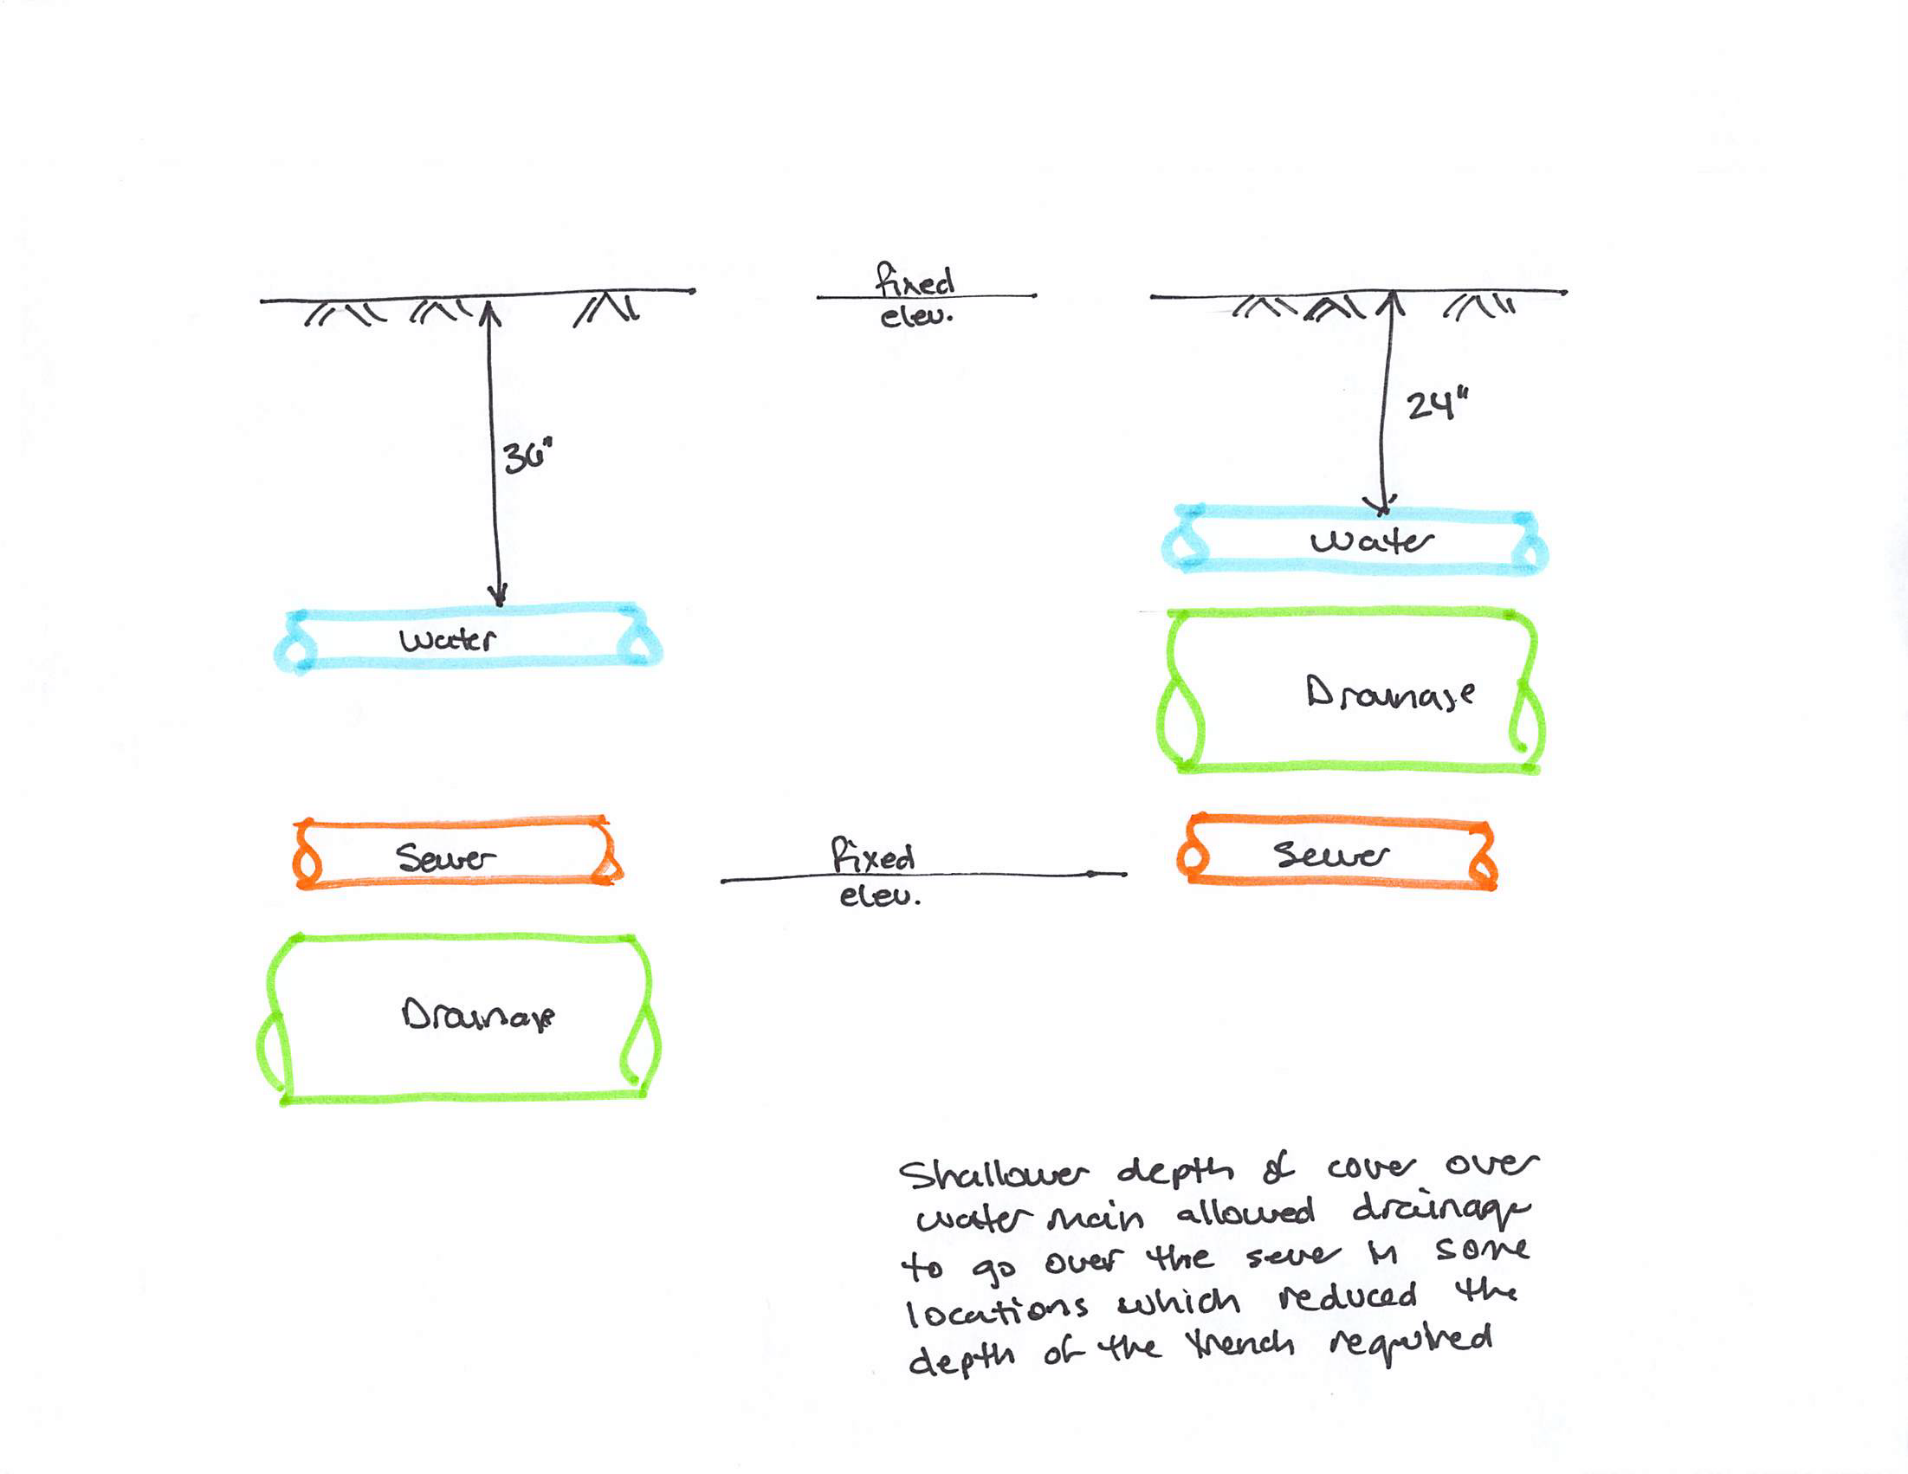 fixed
elev.
36"
24"
Water
Water
Drainage
Sewer
fixed
elev.
Sewer
Drainage
Shallower depth of cover over
water main allowed drainage
to go over the sewer in some
locations which reduced the
depth of the trench required